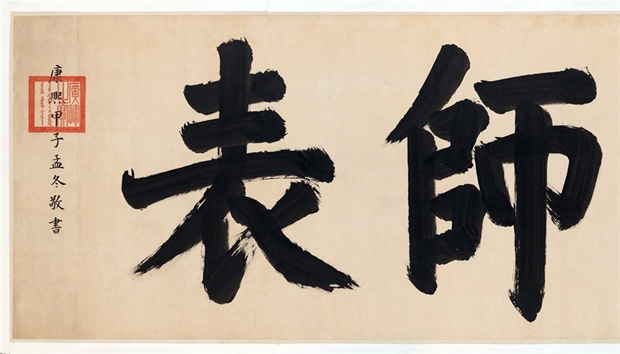 師表
康熙甲子孟冬敬書